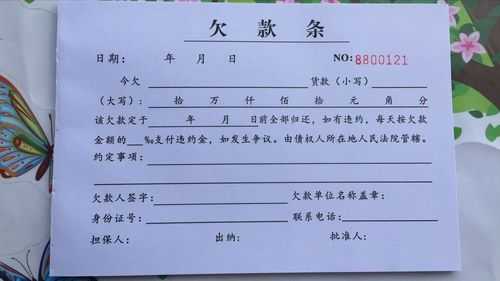 欠款条
日期: 年 月 日 NO:8800121
今欠 货款(小写)
(大写): 拾 万 仟 佰 拾 元 角 分
该欠款定于 年 月 日前全部归还,如有违约,每天按欠款
金额的__‰支付违约金,如发生争议。由债权人所在地人民法院管辖。
约定事项:
欠款人签字: 欠款单位名称盖章:
身份证号: 联系电话:
担保人: 出纳: 批准人: